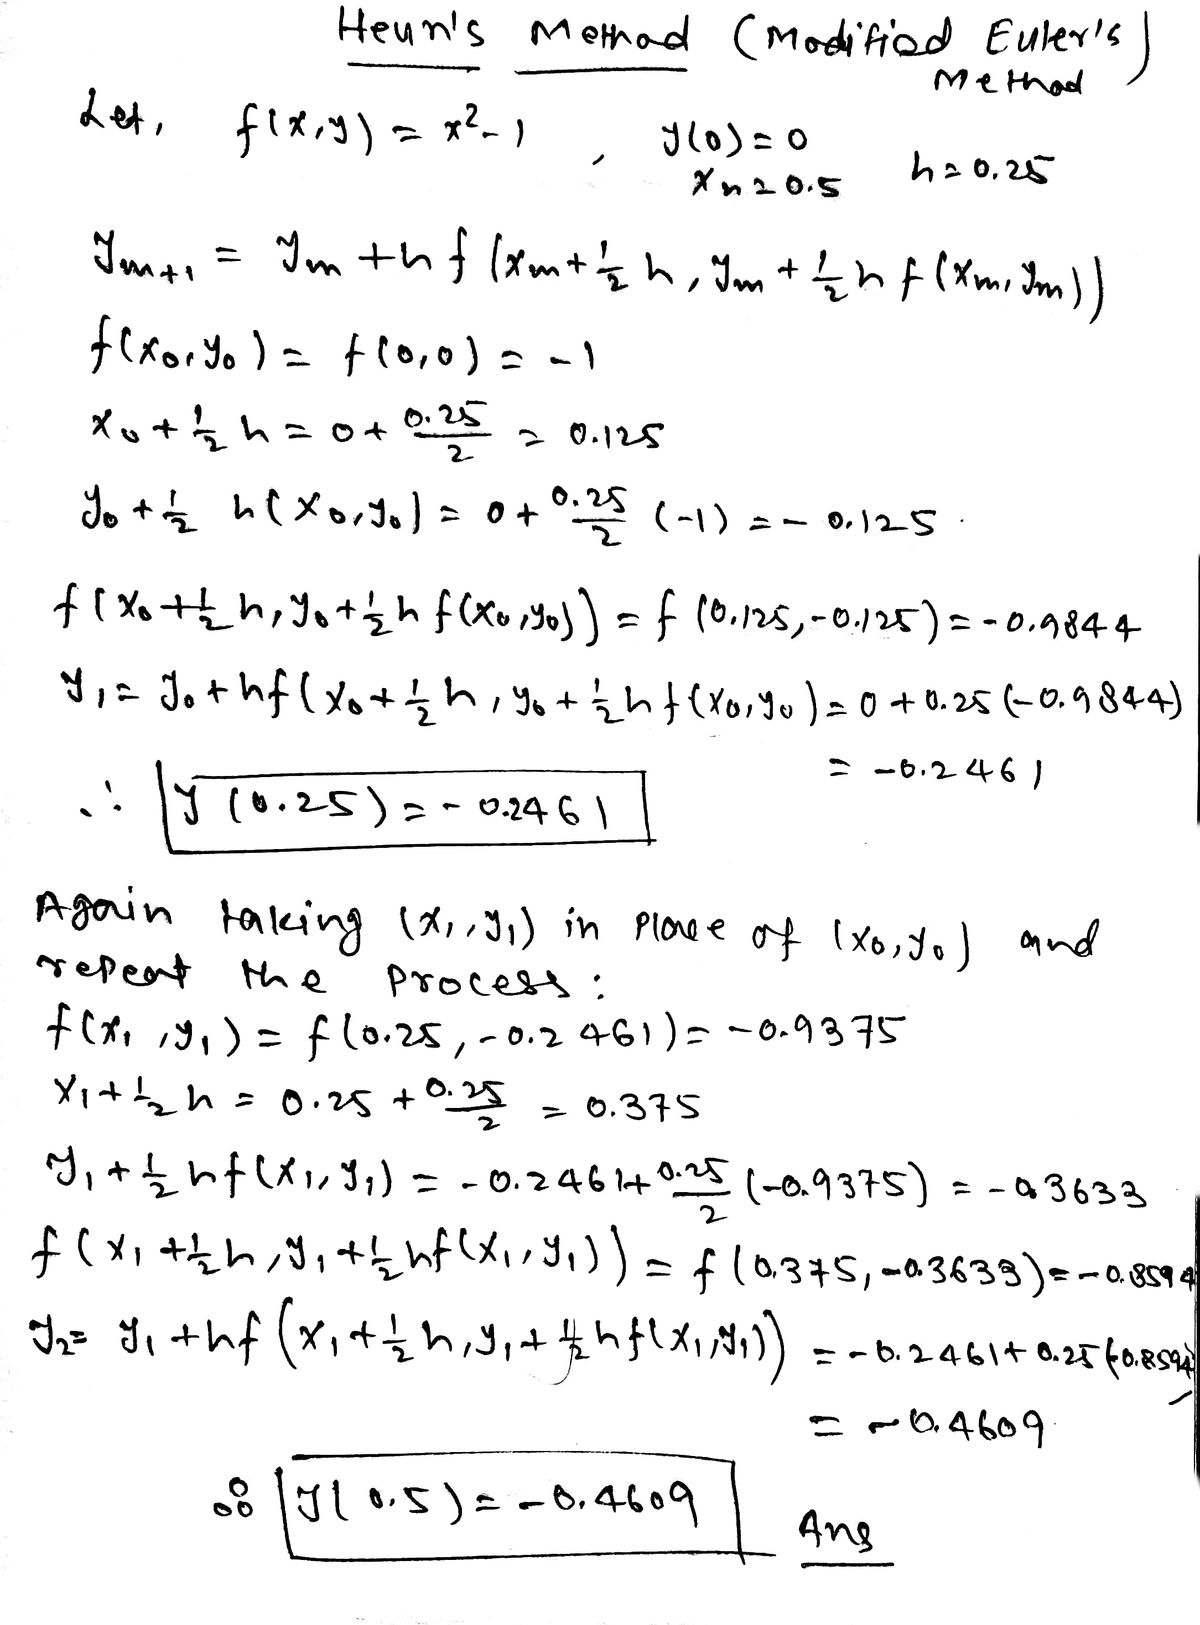 Heun's Method (Modified Euler's)
Method
Let, f(x,y) = x²-1 , y(0)=0
xn=0.5 h=0.25
ym+1 = ym +hf (xm+1/2 h, ym + 1/2 h f (xm, ym))
f(x0,y0) = f(0,0) = -1
x0+1/2 h = 0+ 0.25/2 = 0.125
y0+1/2 h(x0,y0) = 0+ 0.25/2 (-1) = - 0.125.
f(x0+1/2 h, y0+1/2 h f(x0,y0)) = f (0.125,-0.125) = -0.9844
y1= y0+hf(x0+1/2 h, y0+1/2 h f(x0,y0) = 0 + 0.25 (-0.9844)
= -0.2461
∴ y (0.25) = - 0.2461
Again taking (x1,y1) in place of (x0,y0) and
repeat the process:
f(x1,y1) = f(0.25,-0.2461) = -0.9375
x1+1/2 h = 0.25 + 0.25/2 = 0.375
y1+1/2 hf(x1,y1) = -0.2461+ 0.25/2 (-0.9375) = -0.3633
f(x1+1/2 h, y1+1/2 hf(x1,y1)) = f(0.375,-0.3633) = -0.8594
y2= y1+hf(x1+1/2 h, y1+1/2 hf(x1,y1)) = -0.2461+ 0.25(-0.8594)
= -0.4609
∴ y(0.5) = -0.4609 Ans